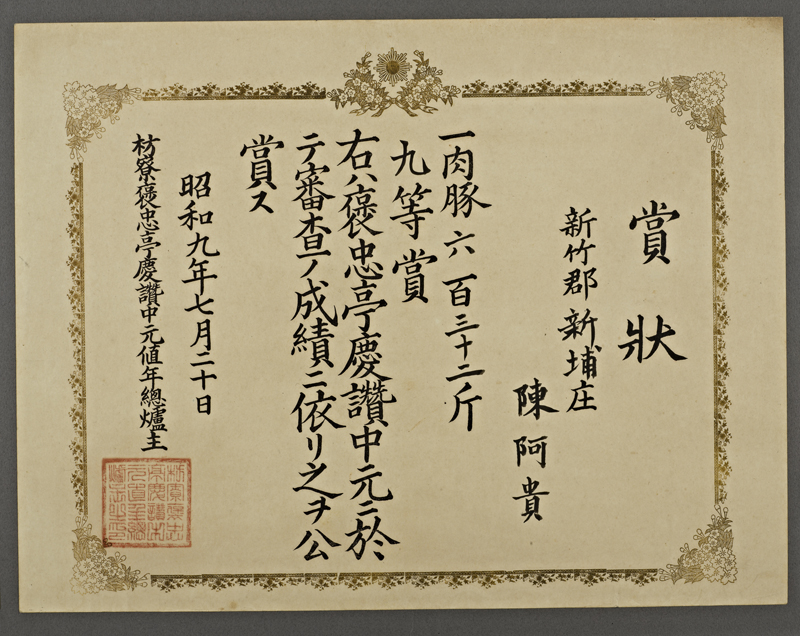 賞狀
新竹郡新埔庄
陳阿貴
一肉豚六百三十二斤
九等賞
右ハ褒忠亭慶讚中元ニ於
テ審查ノ成績ニ依リ之ヲ公
賞ス
昭和九年七月二十日
枋寮褒忠亭慶讚中元値年總爐主